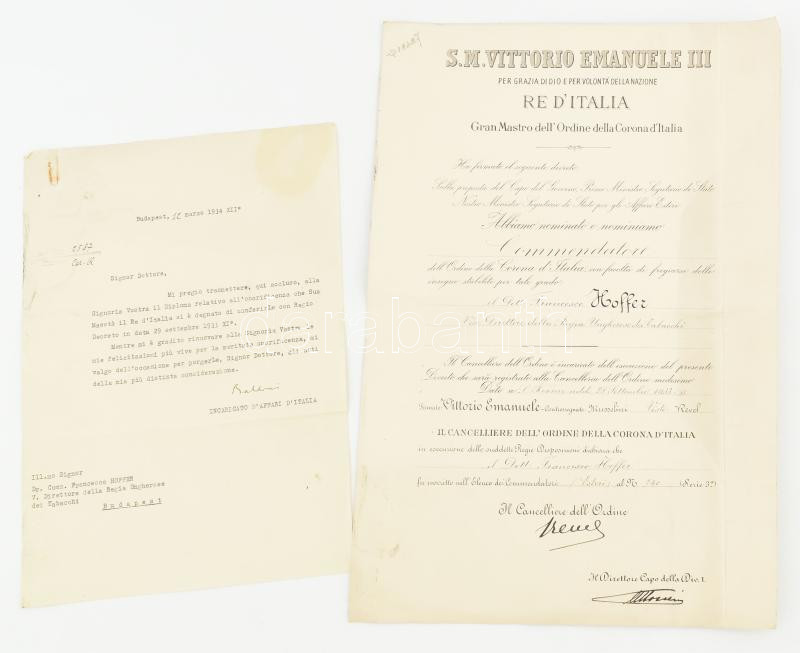 Budapest, 12 marzo 1934 XII°
2587
Signor Dottore,
Mi pregio trasmettere, qui accluso, alla
Signoria Vostra il Diploma relativo all'onorificenza che Sua
Maestà il Re d'Italia si è degnato di conferirLe con Regio
Decreto in data 29 settembre 1933 XI°.
Mentre mi è gradito rinnovare alla Signoria Vostra le
mie felicitazioni più vive per la meritata onorificenza, mi
valgo dell'occasione per porgerLe, Signor Dottore, gli atti
della mia più distinta considerazione.
INCARICATO D'AFFARI D'ITALIA
Ill.mo Signor
Dr. Comm. Francesco HOFFER
V. Direttore della Regia Ungherese
dei Tabacchi
Budapest
S.M. VITTORIO EMANUELE III
PER GRAZIA DI DIO E PER VOLONTÀ DELLA NAZIONE
RE D'ITALIA
Gran Mastro dell'Ordine della Corona d'Italia
Ha firmato il seguente decreto
Sulla proposta del Capo del Governo, Primo Ministro Segretario di Stato
Nostro Ministro Segretario di Stato per gli Affari Esteri
Abbiamo nominato e nominiamo
Commendatore
dell'Ordine della Corona d'Italia, con facoltà di fregiarsi delle
insegne stabilite per tale grado
il Dott. Francesco Hoffer
Vice Direttore della Regia Ungherese dei Tabacchi
Il Cancelliere dell'Ordine è incaricato dell'esecuzione del presente
Decreto che sarà registrato alla Cancelleria dell'Ordine medesimo
Dato a S. Rossore addì 29 Settembre 1933 XI
Firmato Vittorio Emanuele Controsegnato Mussolini Visto Revel
IL CANCELLIERE DELL'ORDINE DELLA CORONA D'ITALIA
in esecuzione delle suddette Regie Disposizioni dichiara che
il Dott. Francesco Hoffer
fu inscritto nell'Elenco dei Commendatori (Esteri) al N. 340 (Serie 3ª)
Il Cancelliere dell'Ordine
Revel
Il Direttore Capo della Div. I.
Darabanth